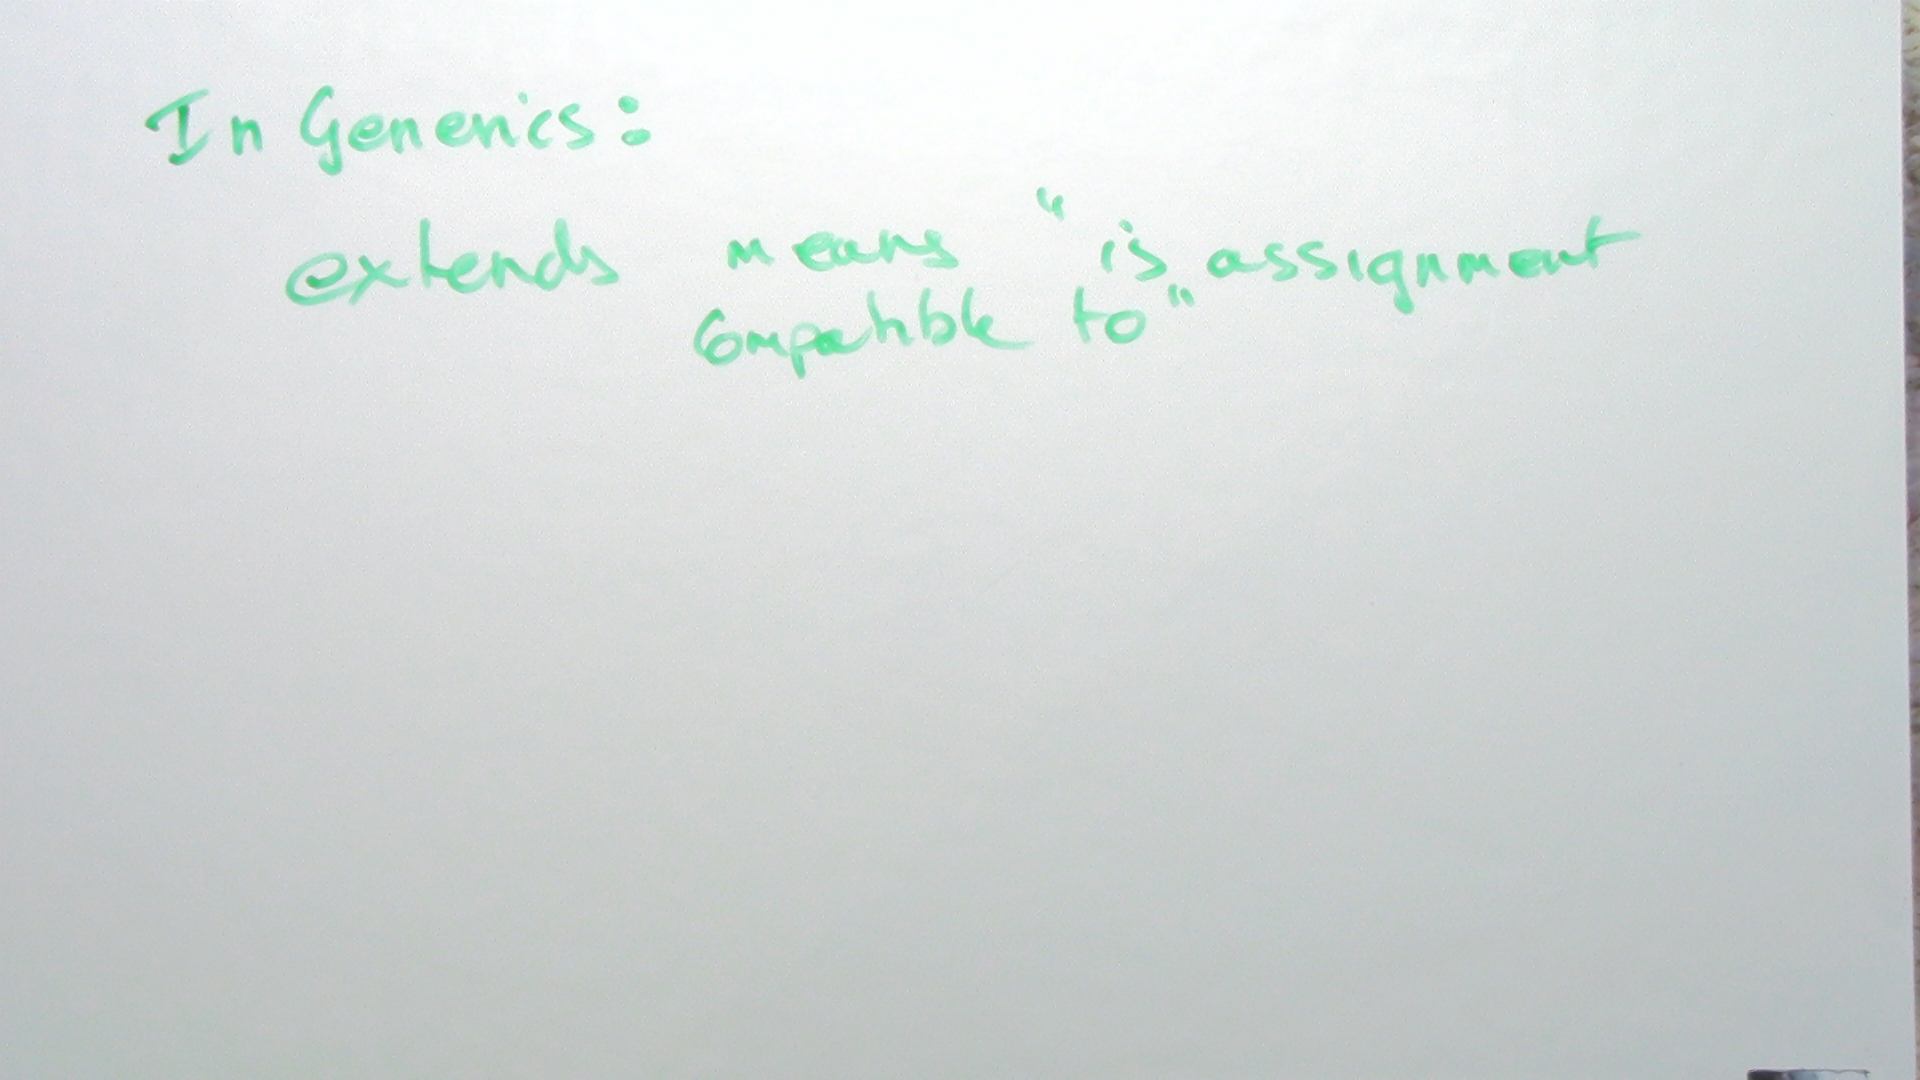 In Generics:
extends means "is assignment
compatible to"